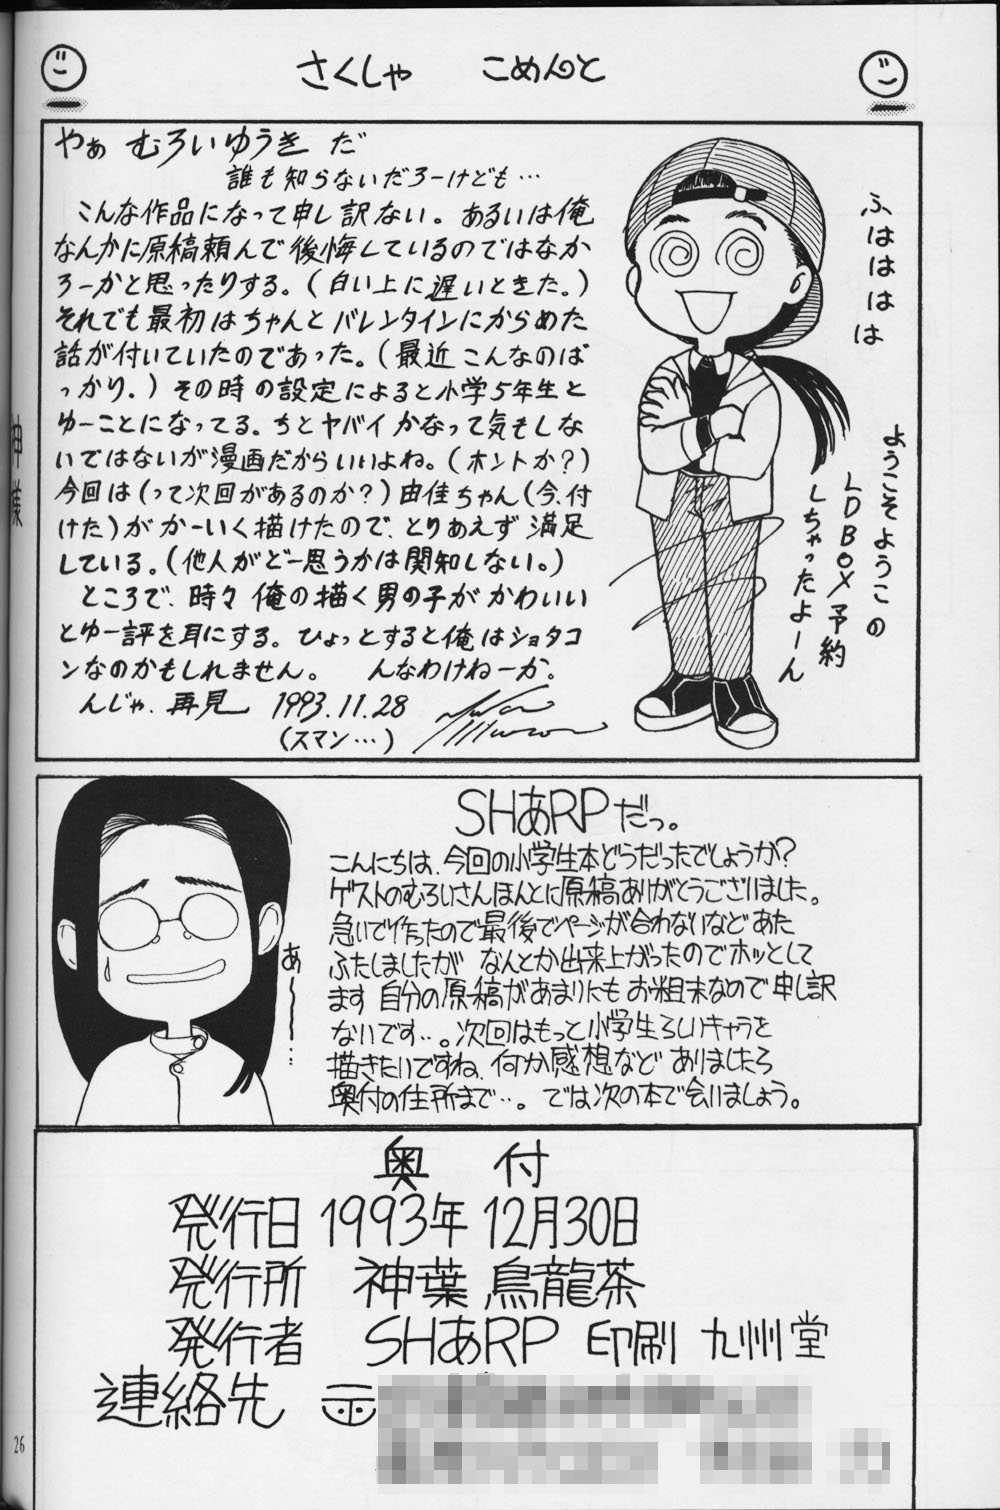 さくしゃ　こめんと
やぁ むろいゆうき だ
誰も知らないだろーけども…
こんな作品になって申し訳ない。あるいは俺
なんかに原稿頼んで後悔しているのではなか
ろーかと思ったりする。(白い上に遅いときた。)
それでも最初はちゃんとバレンタインにからめた
話が付いていたのであった。(最近こんなのば
っかり.)その時の設定によると小学5年生と
ゆーことになってる。ちとヤバイかなって気もしな
いではないが漫画だからいいよね。(ホントか?)
今回は(って次回があるのか?)由佳ちゃん(今、付
けた)がかーいく描けたので、とりあえず満足
している。(他人がどー思うかは関知しない。)
ところで、時々俺の描く男の子がかわいい
とゆー評を耳にする。ひょっとすると俺はショタコ
ンなのかもしれません。　んなわけねーか.
んじゃ、再見 1993.11.28
(スマン…)
ふはははは
ようこそようこの
LDBOX予約
しちゃったよーん
SHあRPだっ。
こんにちは、今回の小学生本どうだったでしょうか?
ゲストのむろいさんほんとに原稿ありがとうございました。
急いで作ったので最後でページが合わないなどあた
ふたしましたが なんとか出来上がったのでホッとして
ます 自分の原稿があまりにもお粗末なので申し訳
ないです…。次回はもっと小学生らしいキャラを
描きたいですね、何か感想など ありましたら
奥付の住所まで…。では次の本で会いましょう。
あ〜〜…
奥　付
発行日 1993年 12月30日
発行所　神葉 烏龍茶
発行者　SHあRP 印刷 九州堂
連絡先
26
神様